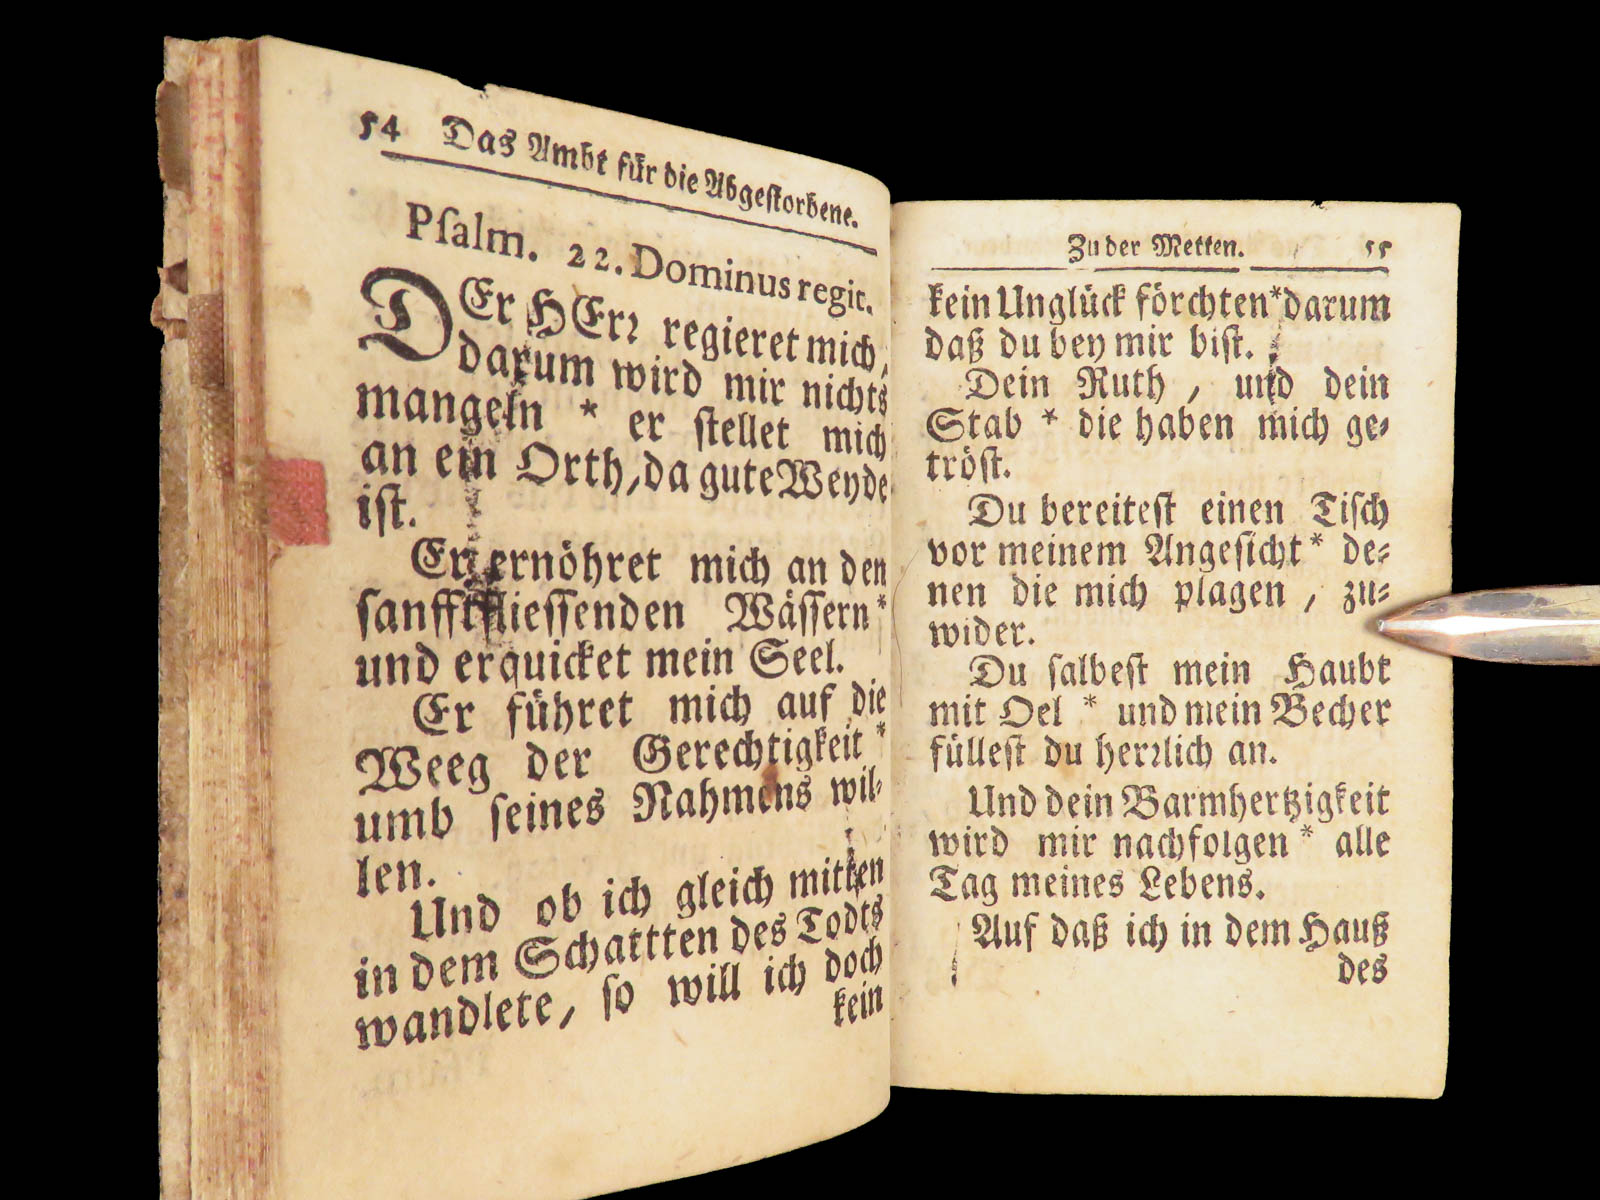 54 Das Ambt für die Abgestorbene.
Psalm. 22. Dominus regit.
DEr HErr regieret mich,
darum wird mir nichts
mangeln * er stellet mich
an ein Orth, da gute Weyde
ist.
Er ernöhret mich an den
sanfftfliessenden Wässern *
und erquicket mein Seel.
Er führet mich auf die
Weeg der Gerechtigkeit *
umb seines Nahmens wil-
len.
Und ob ich gleich mitten
in dem Schattten des Todts
wandlete, so will ich doch
kein
Zu der Metten. 55
kein Unglück förchten * darum
daß du bey mir bist.
Dein Ruth, und dein
Stab * die haben mich ge-
tröst.
Du bereitest einen Tisch
vor meinem Angesicht * de-
nen die mich plagen, zu-
wider.
Du salbest mein Haubt
mit Oel * und mein Becher
füllest du herrlich an.
Und dein Barmhertzigkeit
wird mir nachfolgen * alle
Tag meines Lebens.
Auf daß ich in dem Hauß
des